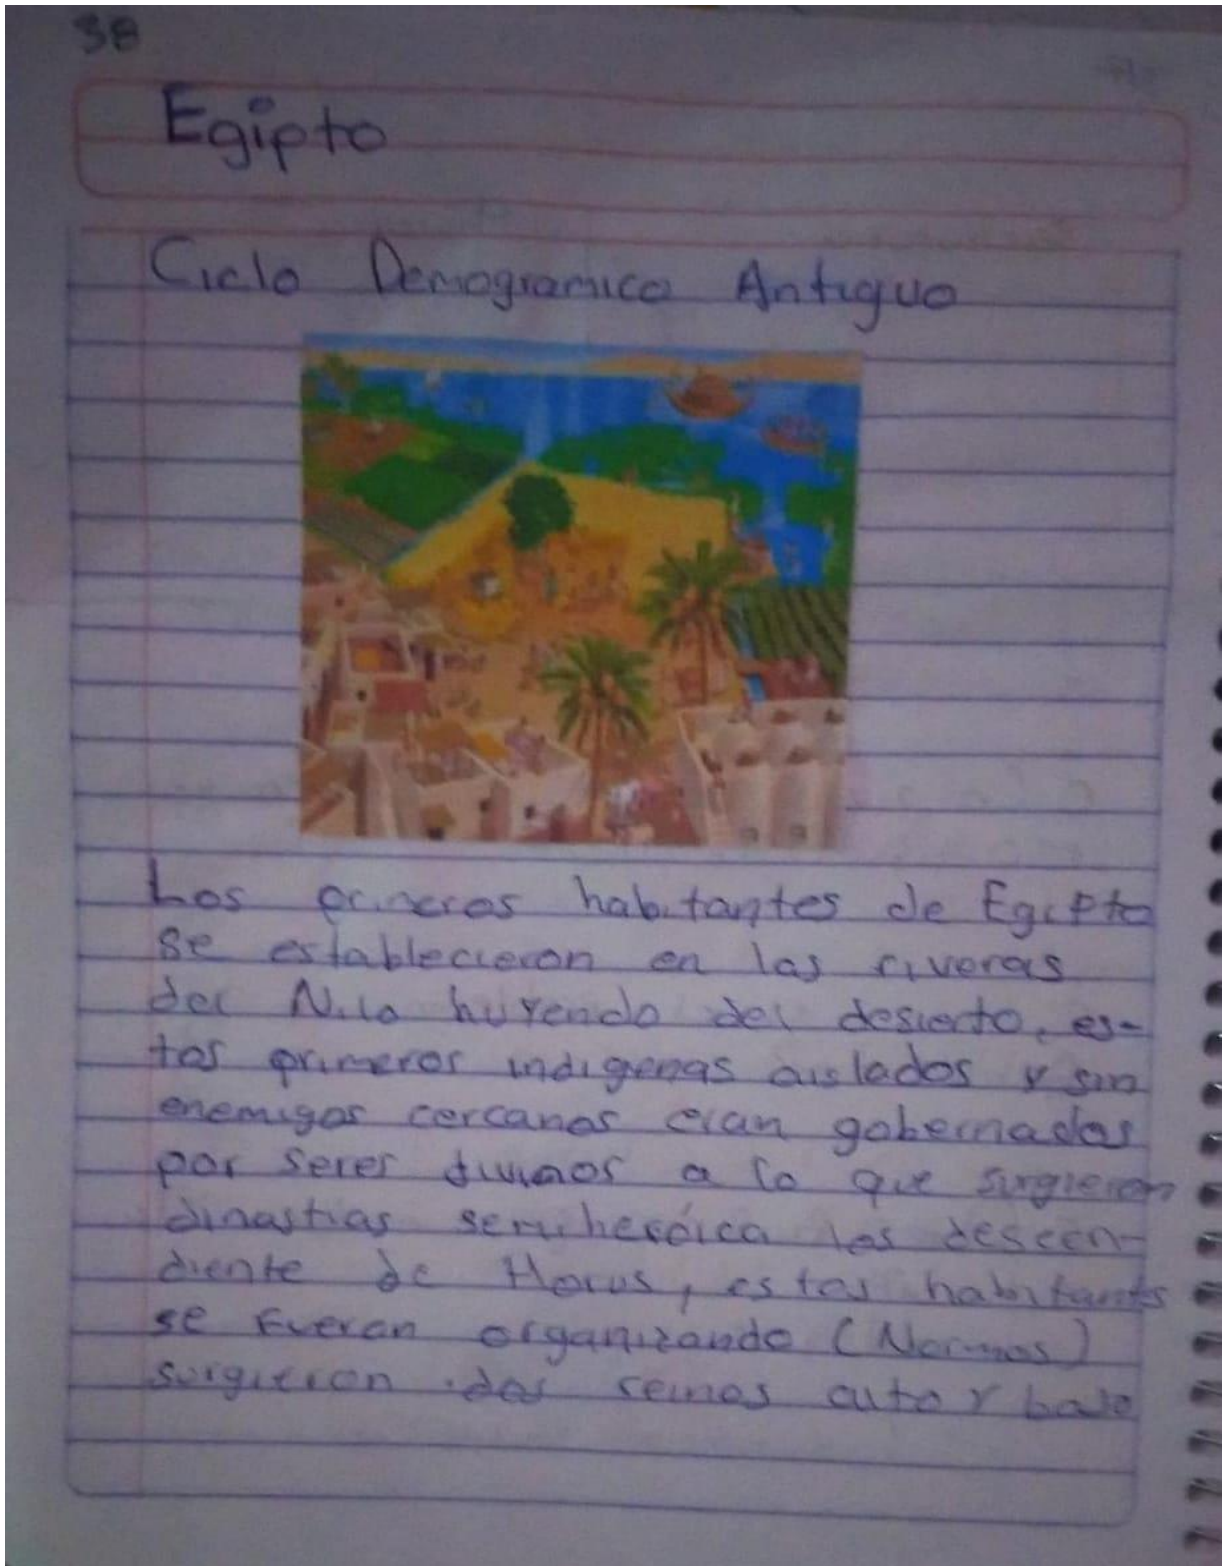 38
Egipto
Ciclo Demogramico Antiguo
Los primeros habitantes de Egipto
se establecieron en las riveras
del Nilo huyendo del desierto, es-
tos primeros indigenas aislados y sin
enemigos cercanos eran gobernados
por seres divinos a lo que surgieron
dinastias semiheróica los descen-
diente de Horus, estos habitantes
se fueron organizando (Normos)
surgieron dos reinos auto y bajo